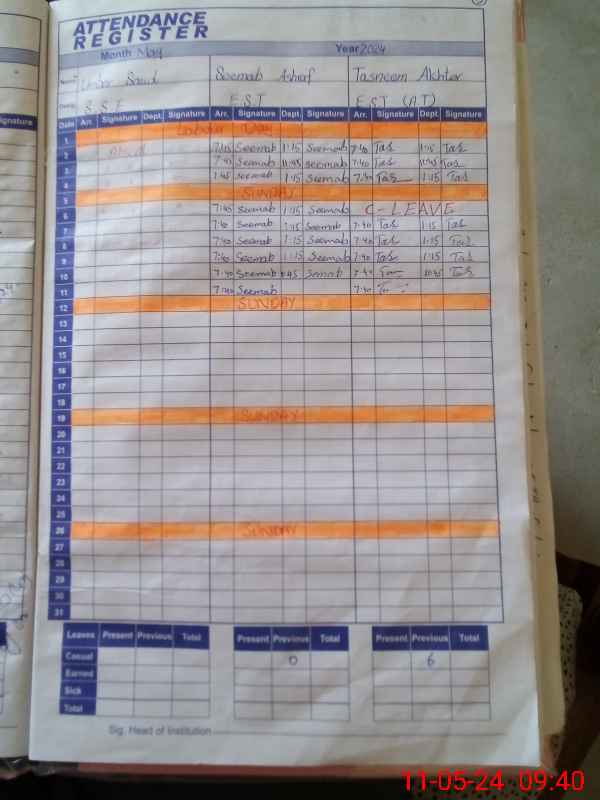 ATTENDANCE
REGISTER
Month May Year 2024
Seemab Ashraf Tasneem Akhter
S.S.T E.S.T E.S.T (A.T)
Date Arr. Signature Dept. Signature Arr. Signature Dept. Signature Arr. Signature Dept. Signature
1 Labour Day
2 Seemab 1:15 Seemab 7:40 Tas 1:15 Tas
3 7:40 Seemab 11:45 Seemab 7:40 Tas 11:45 Tas
4 Seemab 1:15 Seemab 7:40 Tas 1:15 Tas
5 SUNDAY
6 7:40 Seemab 1:15 Seemab C-LEAVE
7 7:40 Seemab 1:15 Seemab 7:40 Tas 1:15 Tas
8 7:40 Seemab 1:15 Seemab 7:40 Tas 1:15 Tas
9 7:40 Seemab 1:15 Seemab 7:40 Tas 1:15 Tas
10 7:40 Seemab Seemab 7:40 Tas Tas
11 7:40 Seemab 7:40
12 SUNDAY
13
14
15
16
17
18
19 SUNDAY
20
21
22
23
24
25
26 SUNDAY
27
28
29
30
31
Leaves Present Previous Total Present Previous Total Present Previous Total
Casual 0 6
Earned
Sick
Total
Sig. Head of Institution
11-05-24 09:40